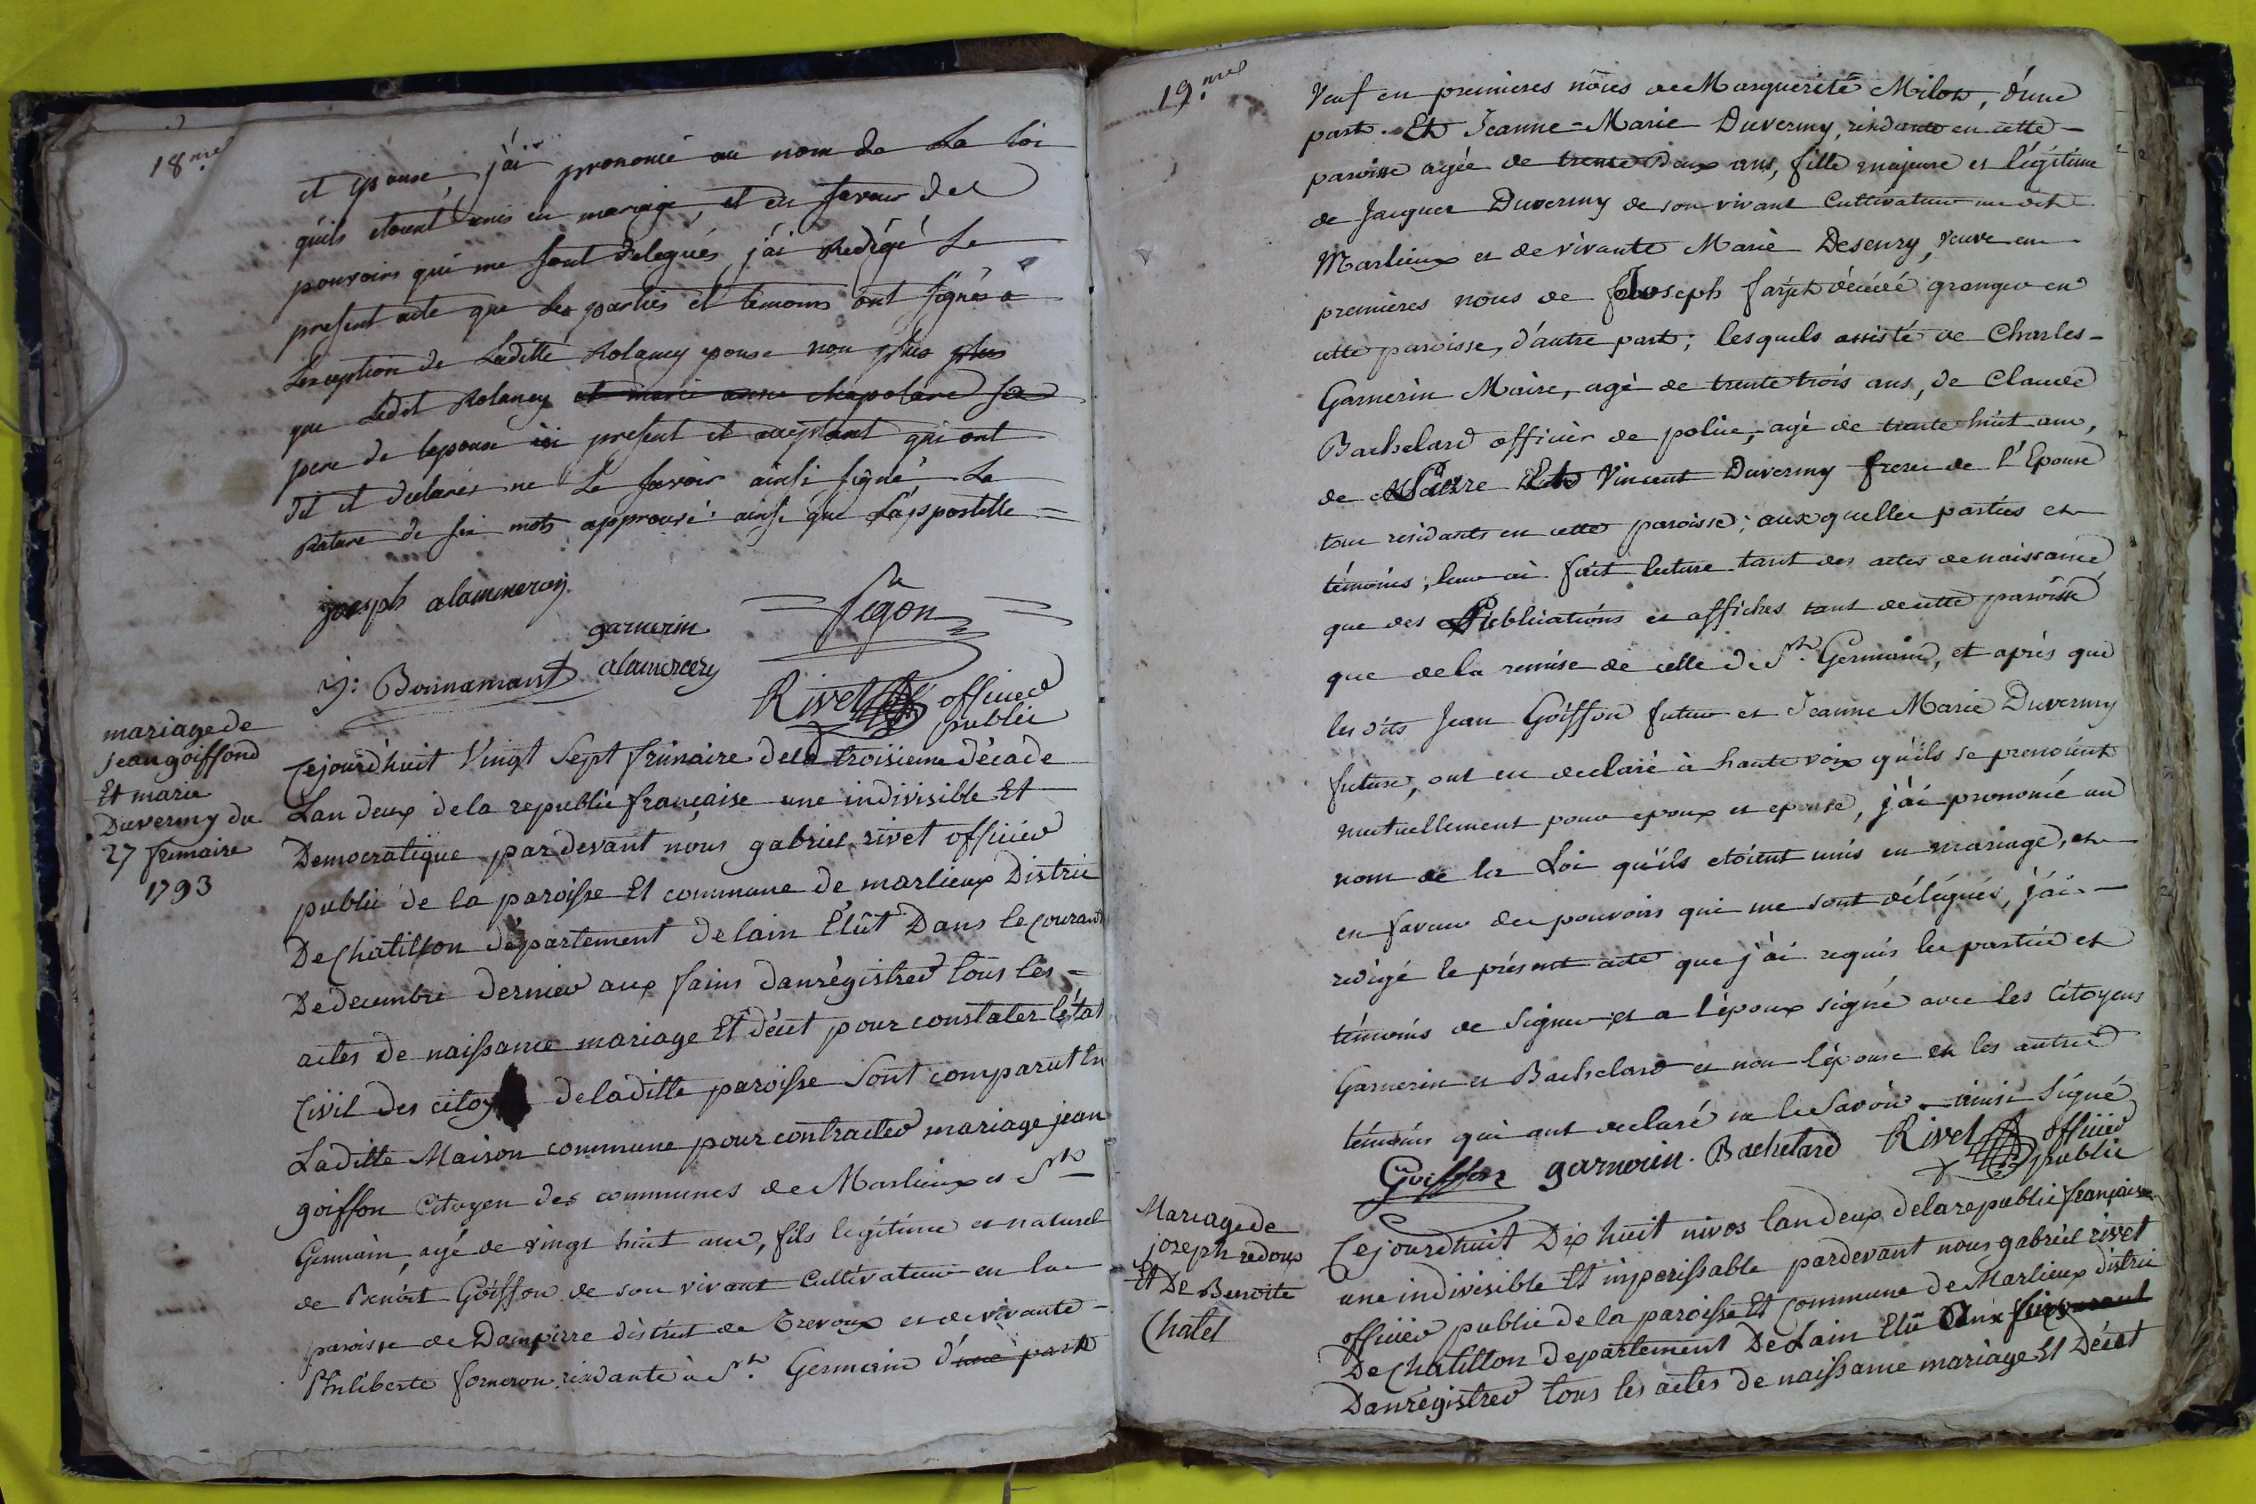 18.me
et epouse, j'ai prononcé au nom de La loi
quils etoient unis en mariage, et en faveur des
pouvoirs qui me sont delegués, j'ai Redigé Le
present acte que les parties et temoins ont signés a
Lexception de Laditte Rolancy epouse non plus plus
que Ledit Rolancy et marie anne chapolard sa
pere de lepouse ici present et acceptant qui ont
dit et déclarés ne Le savoir ainsi signé La
Rature de six mots approuvé ainsi que L'appostille =
joseph alammercery
garnerin
figon
j: Bonnamant
alamercery
Rivet officier
public
mariage de
jean goiffond
Et marie
Duvermy du
27 frimaire
1793
Cejourdhuit Vingt Sept frimaire de la troisieme décade
Lan deux dela republic française une indivisible Et
Democratique par devant nous gabriel rivet officier
public de la paroisse Et commune de marlieux Distric
De chatillon département delain Elût Dans le courant
De decembre dernier aux fains danrégistrer tous les =
actes de naissance mariage Et décet pour constater létat
Civil des citoy deladitte paroisse Sont comparut En
Laditte Maison commune pour contracter mariage jean
goiffon Citoyen des communes de Marlieux et St
Germain, agé de vingt huit ans, fils legitime et naturel
de Benoit Goiffon de son vivant Cultivateur en la
paroisse de Dampierre district de Trevoux et de vivante
Philiberte forneron residante à St. Germain d'une part
19.me
Veuf en premieres nôces de Marguerite Milon, d'une
part. Et Jeanne-Marie Duvermy, residante en cette
paroisse agée de trente Deux ans, fille majeure et légitime
de Jacques Duvermy de son vivant Cultivateur au dit
Marlieux et de vivante Marie Desenry, veuve en
premières noces de Joseph décédé granger en
cette paroisse, d'autre part; lesquels assisté de Charles-
Garnerin Maire, agé de trente trois ans, de Claude
Bachelard officier de police, agé de trente huit ans,
de Pierre Et Vincent Duvermy freres de l'Epouse
tous residants en cette paroisse; auxquelles parties et
témoins, leur ai fait lecture tant des actes de naissance
que des Publications et affiches tant de cette paroisse
que de la remise de celle de St. Germain, et après que
les dits Jean Goiffon futur et Jeanne Marie Duvermy
future, ont eu declaré à haute voix qu'ils se prenoient
mutuellement pour epoux et epouse, j'ai prononcé au
nom de la Loi qu'ils etoient unis en mariage, et
en faveur des pouvoirs qui me sont délégués, j'ai
redigé le présent acte que j'ai requis les parties et
témoins de Signer et a l'époux signé avec les Citoyens
Garnerin et Bachelard et non l'épouse et les autres
témoins qui ont declaré ne le Savoir. ainsi Signé
Goiffon garnerin. Bachelard Rivet officier
public
Mariage de
joseph redoux
Et De Benoite
Chatel
Cejourdhuit Dix huit nivos lan deux dela republic française
une indivisible Et imperissable pardevant nous gabriel rivet
officier public de la paroisse Et commune de Marlieux distric
De chatillon departement De Lain Elû Aux fins
Danrégistrer tous les actes de naissance mariage Et Décet